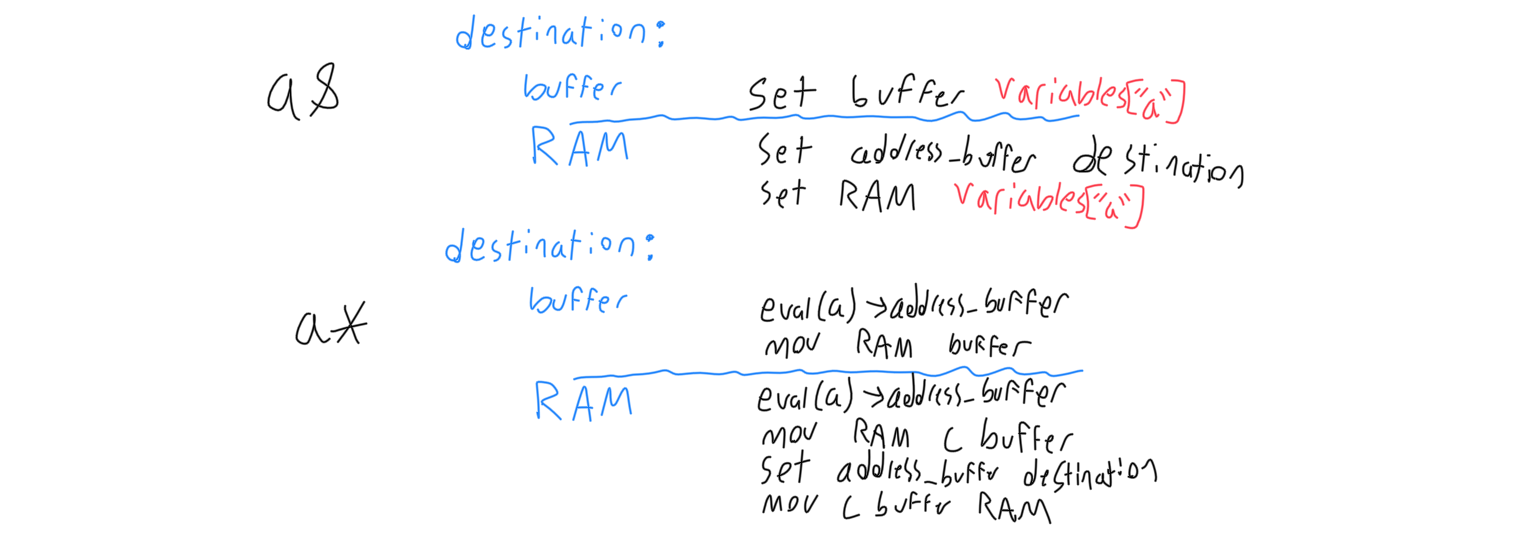 destination:
a$ buffer set buffer variables["a"]
RAM set address_buffer destination
set RAM variables["a"]
destination:
buffer eval(a)→address_buffer
a* mov RAM buffer
RAM eval(a)→address_buffer
mov RAM C buffer
set address_buffer destination
mov C buffer RAM